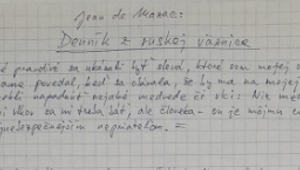 Jean de Marac:
Denník z ruskej väznice
é pravdivé sa ukázali byť slová, ktoré som mojej
povedal, keď sa obávala, že by ma na mojej
napadnúť nejaké medvede či vlci: Nie med
vlkov sa mi treba báť, ale človeka - on je mojím
nepriateľom. =